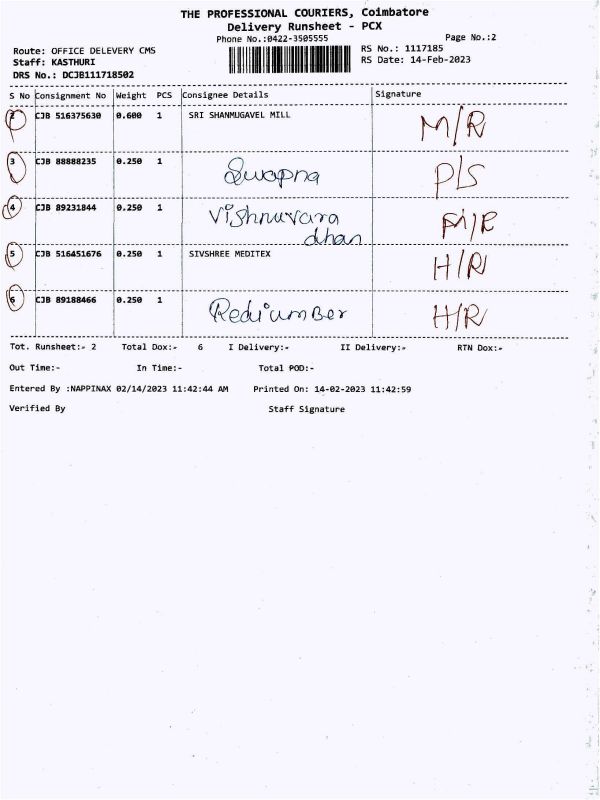 THE PROFESSIONAL COURIERS, Coimbatore
Delivery Runsheet - PCX
Phone No.:0422-3505555 Page No.:2
Route: OFFICE DELEVERY CMS RS No.: 1117185
Staff: KASTHURI RS Date: 14-Feb-2023
DRS No.: DCJB111718502
S No Consignment No Weight PCS Consignee Details Signature
2 CJB 516375630 0.600 1 SRI SHANMUGAVEL MILL M/R
3 CJB 88888235 0.250 1 Swapna P/S
4 CJB 89231844 0.250 1 Vishnuvara dhan M/R
5 CJB 516451676 0.250 1 SIVSHREE MEDITEX H/R
6 CJB 89188466 0.250 1 Rediumber H/R
Tot. Runsheet:- 2 Total Dox:- 6 I Delivery:- II Delivery:- RTN Dox:-
Out Time:- In Time:- Total POD:-
Entered By :NAPPINAX 02/14/2023 11:42:44 AM Printed On: 14-02-2023 11:42:59
Verified By Staff Signature